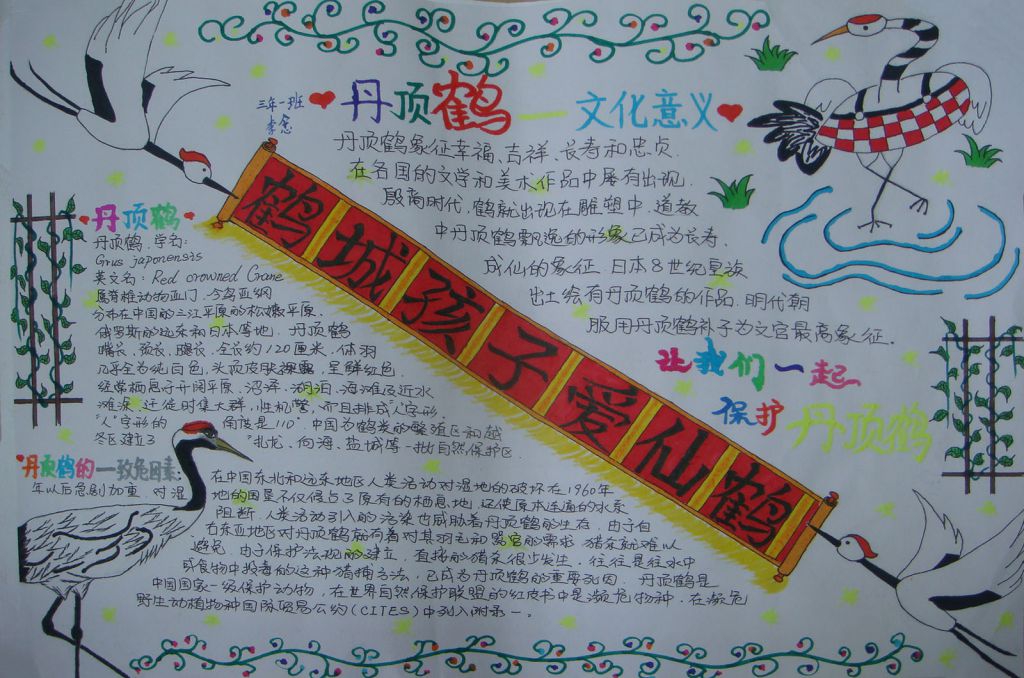 三年一班
丹顶鹤——文化意义
丹顶鹤象征幸福、吉祥、长寿和忠贞.
在各国的文学和美术作品中屡有出现.
殷商时代,鹤就出现在雕塑中.道教
中丹顶鹤飘逸的形象已成为长寿、
成仙的象征.日本8世纪皇族
出土绘有丹顶鹤的作品.明代朝
服用丹顶鹤补子为文官最高象征.
鹤城孩子爱仙鹤
让我们一起
保护丹顶鹤
丹顶鹤
丹顶鹤,学名:
Grus japonensis
英文名: Red crowned Crane
属脊椎动物亚门、今鸟亚纲
分布在中国的三江平原的松嫩平原、
俄罗斯的远东和日本等地. 丹顶鹤
嘴长、颈长、腿长.全长约120厘米,体羽
几乎全为纯白色,头顶皮肤裸露,呈鲜红色.
经常栖息于开阔平原、沼泽、湖泊、海滩及近水
滩涂.迁徙时集大群,性机警,而且排成"人"字形
"人"字形的 角度是110° 中国为鹤类的繁殖区和越
冬区建立了 "扎龙、向海、盐城等一批自然保护区.
丹顶鹤的一致危因素:
在中国东北和远东地区人类活动对湿地的破坏在1960年
年以后急剧加重.对湿 地的围垦不仅侵占了原有的栖息地,还使原本连通的水系
阻断.人类活动引入的污染也威胁着丹顶鹤的生存.由于自
古东亚地区对丹顶鹤就有着对其羽毛和器官的需求,猎杀就难以
避免.由于保护法规的建立,直接的猎杀很少发生,往往是往水中
或食物中投毒的这种猎捕方法,已成为丹顶鹤的重要死因. 丹顶鹤是
中国国家一级保护动物,在世界自然保护联盟的红皮书中是濒危物种.在濒危
野生动植物种国际贸易公约(CITES)中列入附录一.